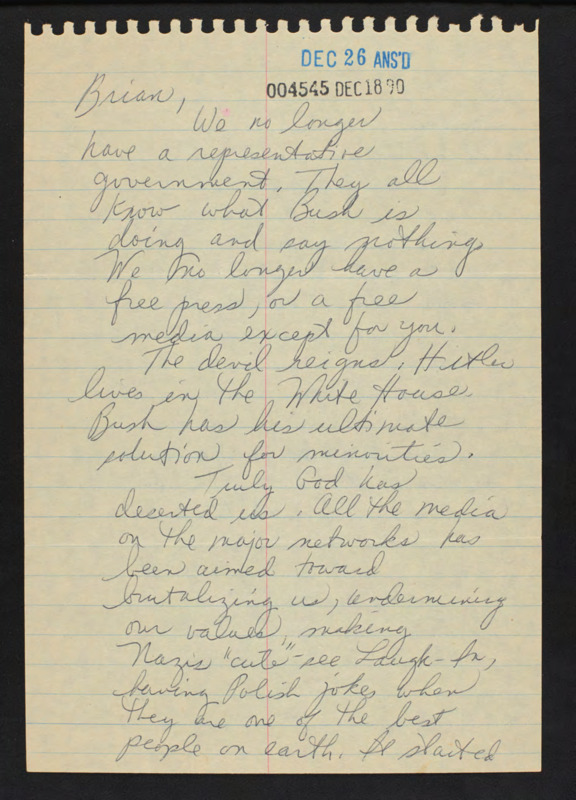 DEC 26 ANS'D
004545 DEC 18 90
Brian,
We no longer
have a representative
government. They all
know what Bush is
doing and say nothing
We no longer have a
free press, or a free
media except for you.
The devil reigns. Hitler
lives in the White House.
Bush has his ultimate
solution for minorities.
Truly God has
deserted us. All the media
on the major networks has
been aimed toward
brutalizing us, undermining
our values, making
Nazis "cute" - see Laugh-In,
having Polish jokes when
they are one of the best
people on earth. It started